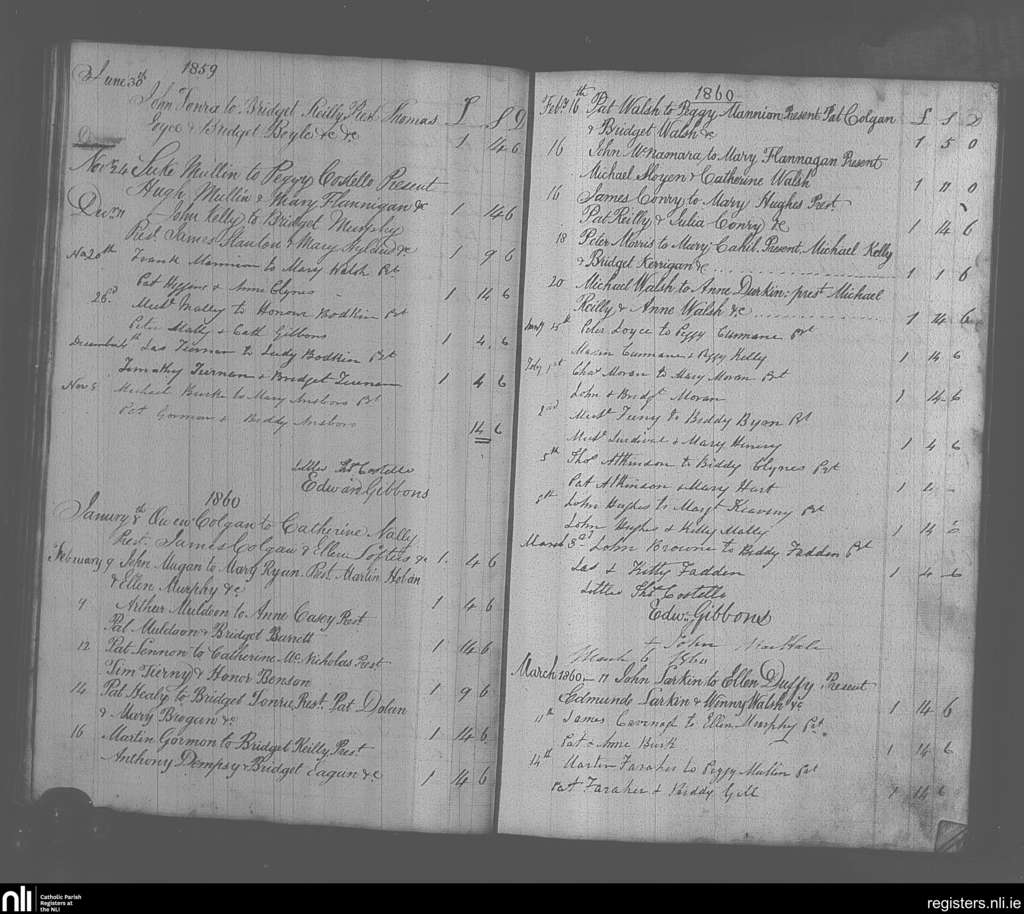 1859
June 30th
John Tonra to Bridget Reilly Prest Thomas £ S D
Joyce & Bridget Boyle &c &c 1 14 6
Novr 24 Luke Mullin to Peggy Costello Present
Hugh Mullin & Mary Flannigan &c 1 14 6
John Kelly to Bridget Murphy
Prest James Stanton & Mary Hyland &c 1 9 6
Nov 20th Frank Mannion to Mary Walsh Pst
Pat Higgens & Anne Clynes 1 14 6
26 Michl Mally to Honour Bodkin Pst
Peter Mally & Cath Gibbons 1 4 6
December Jas Tiernan to Judy Bodkin Pst
Timothy Tiernan & Bridget Tiernan 1 4 6
Nov 8 Michael Burke to Mary Ansboro Pst
Pat Gorman & Biddy Ansboro 14 6
settled Thos Costello
Edward Gibbons
1860
January 8th Owen Colgan to Catherine Nally
Prest James Colgan & Ellen Lofters &c 1 4 6
February 9 John Mugan to Mary Ryan Prest Martin Hoban
& Ellen Murphy &c 1 4 6
9 Arthur Muldoon to Anne Casey Prest
Pat Muldoon & Bridget Barrett 1 14 6
12 Pat Lennon to Catherine McNicholas Prest
Tim Tierny & Honor Benson 1 9 6
14 Pat Healy to Bridget Tonra Prest. Pat Dolan
& Mary Brogan &c 1 14 6
16 Martin Gormon to Bridget Reilly Prest
Anthony Dempsy & Bridget Eagan &c 1 14 6
1860
Feby 16th Pat Walsh to Peggy Mannion Present Pat Colgan £ S D
& Bridget Walsh &c 1 5 0
16 John McNamara to Mary Flannagan Present
Michael & Catherine Walsh 1 11 0
16 James Conry to Mary Hughes Prest.
Pat Reilly & Julia Conry &c 1 14 6
18 Peter Morris to Mary Cahil. Present Michael Kelly
& Bridget Kerrigan &c 1 1 6
20 Michael Walsh to Anne Durkin: prest Michael
Reilly & Anne Walsh &c 1 14 6
15th Peter Joyce to Peggy Cunnane Pst
Martin Cunnane & Peggy Kelly 1 14 6
Feby 1st Chas Moran to Mary Moran Pst
John & Bridgt Moran 1 14 6
2nd Michl Feeny to Biddy Byan Pst
Michl & Mary Henery 1 4 6
5th Thos Atkinson to Biddy Clynes Pst
Pat Atkinson & Mary Hart
John Hughes to Margt Keaveny Pst
John Hughes & Kitty Mally 1 14
March 3rd John Browne to Biddy Fadden Pst
Jas & Kitty Fadden 1 4 6
Settled Thos Costello
Edwd Gibbons
& John MacHale
March 6 1860
March 1860 11 John Larkin to Ellen Duffy Present
Edmund Larkin & Winny Walsh &c 1 14 6
11th James Cavenagh to Ellen Murphy Pst
Pat & Anne Burk 1 14 6
14th Martin Faraher to Peggy Mullin Pst
Pat Faraher & Biddy Gill 1 14 6
nli
Catholic Parish
Registers at
the NLI
registers.nli.ie